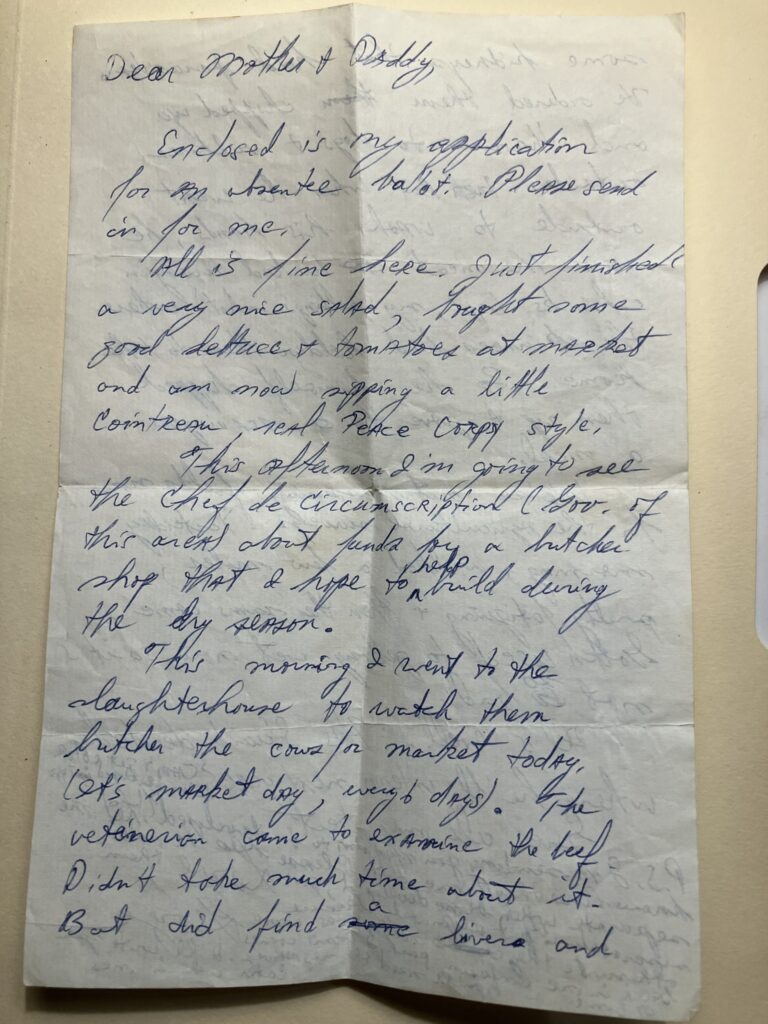 Dear Mother & Daddy,
Enclosed is my application
for an absentee ballot. Please send
in for me.
All is fine here. Just finished
a very nice salad, bought some
good lettuce & tomatoes at market
and am now sipping a little
Cointreau, real Peace Corpy style.
This afternoon I'm going to see
the Chef de Circumscription (Gov. of
this area) about funds for a butcher
shop that I hope to help build during
the dry season.
This morning I went to the
slaughterhouse to watch them
butcher the cows for market today.
(It's market day, every 6 days). The
veterinarian came to examine the beef.
Didn't take much time about it.
But did find some a livers and